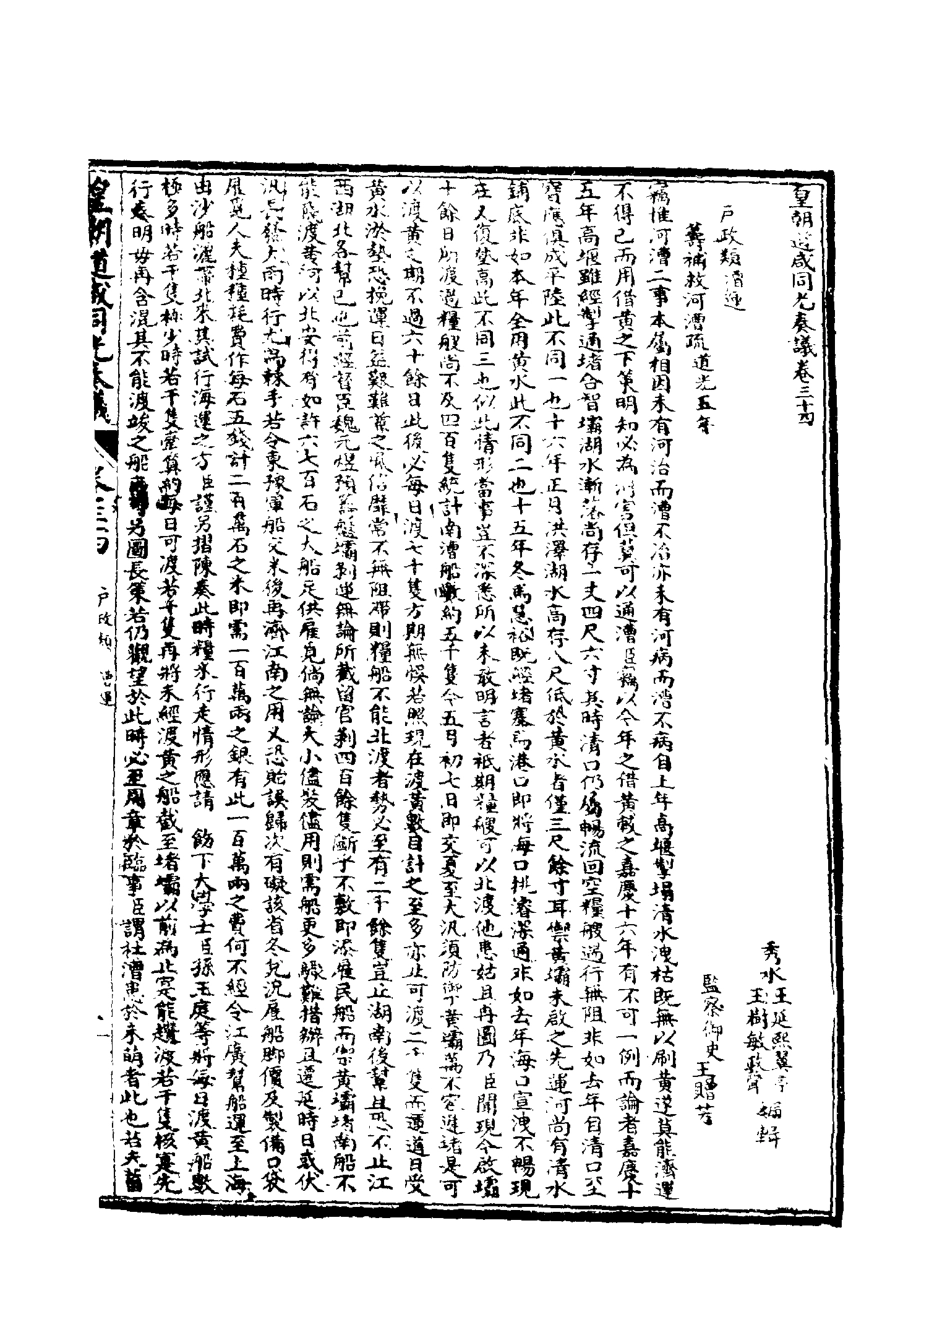 皇朝道咸同光奏議卷三十四
秀水王延熙翼亭
王樹敏政聲編輯
戶政類漕運
籌補救河漕疏道光五年
監察御史王贈芳
竊惟河漕二事本屬相因未有河治而漕不治亦未有河病而漕不病自上年高堰掣塌清水洩枯既無以刷黃遂莫能濟運
不得已而用借黃之下策明知必為河害但冀可以通漕臣竊以今年之借黃較之嘉慶十六年有不可一例而論者嘉慶十
五年高堰雖經掣通堵合智壩湖水漸落尚存一丈四尺六寸其時清口仍屬暢流回空糧艘過行無阻非如去年自清口至
寶應俱成平陸此不同一也十六年正月洪澤湖水高存八尺低於黃水者僅三尺餘寸耳禦黃壩未啟之先運河尚有清水
鋪底非如本年全用黃水此不同二也十五年冬馬港口既經堵塞即將海口挑濬深通非如去年海口宣洩不暢現
在又復墊高此不同三也似此情形當事豈不深悉所以未敢明言者祇期糧艘可以北渡他患姑且再圖乃臣聞現今啟壩
十餘日所渡過糧船尚不及四百隻統計南漕船數約五千隻今五月初七日即交夏至大汛須防禦黃壩萬不容遲堵是可
以渡黃之期不過六十餘日此後必每日渡七十隻方期無悞若照現在渡黃數目計之至多亦止可渡二千隻而運道日受
黃水淤墊恐挽運日益艱難黃之風信靡常不無阻滯則糧船不能北渡者勢必至有二千餘隻豈止湖南後幫且恐不止江
西湖北各幫已也前經督臣魏元煜預籌盤壩剝運無論所截留官剝四百餘隻斷乎不敷即添雇民船而禦黃壩堵南船不
能飛渡黃河以北安得有如許六七百石之大船足供雇覓倘無論大小儘裝儘用則需船更多驟難措辦且遷延時日或伏
汛長發大雨時行尤為棘手若令東豫軍船交米後再濟江南之用又恐貽誤歸次有礙該省冬兌況雇船腳價及製備口袋
雇覓人夫種種耗費作每石五錢計二百萬石之米即需一百萬兩之銀有此一百萬兩之費何不經令江廣幫船運至上海
由沙船灑帶北來其試行海運之方臣謹另摺陳奏此時糧米行走情形應請 飭下大學士臣孫玉庭等將每日渡黃船數
極多時若干隻極少時若干隻牽算約每日可渡若干隻再將未經渡黃之船截至堵壩以前為止寔能趲渡若干隻核寔先
行奏明毋再含混其不能渡竣之船另圖長策若仍觀望於此時必至周章於臨事臣謂杜漕患於未萌者此也若夫蓄
皇朝道咸同光奏議 卷三十四 戶政類 漕運 一